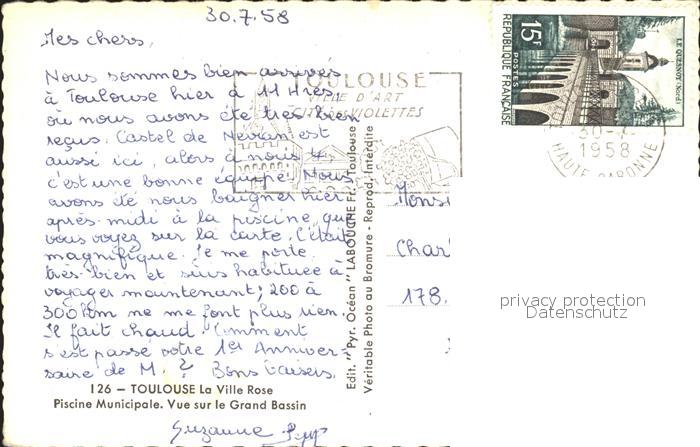 30.7.58
Mes chers,
Nous sommes bien arrivés
à Toulouse hier à 11 Hres,
où nous avons été très bien
reçus. Castel de
aussi ici, alors à nous 4
c'est une bonne équipe! Nous
avons été nous baigner hier
après-midi à la piscine, que
vous voyez sur la carte. C'était
magnifique. Je me porte
très bien et suis habituée à
voyager maintenant; 200 à
300 km ne me font plus rien.
Il fait chaud. Comment
s'est passé votre 1er Anniver-
saire de M.? Bons baisers.
126 — TOULOUSE La Ville Rose
Piscine Municipale. Vue sur le Grand Bassin
Suzanne
TOULOUSE
VILLE D'ART
CITE DES VIOLETTES
Edit. "Pyr. Océan" LABOUCHE Fr., Toulouse
Véritable Photo au Bromure - Reprod. Interdite
15F
POSTES
REPUBLIQUE FRANÇAISE
LE QUESNOY (Nord)
30-7
1958
HAUTE-GARONNE
Monsi
Char
178.
privacy protection
Datenschutz